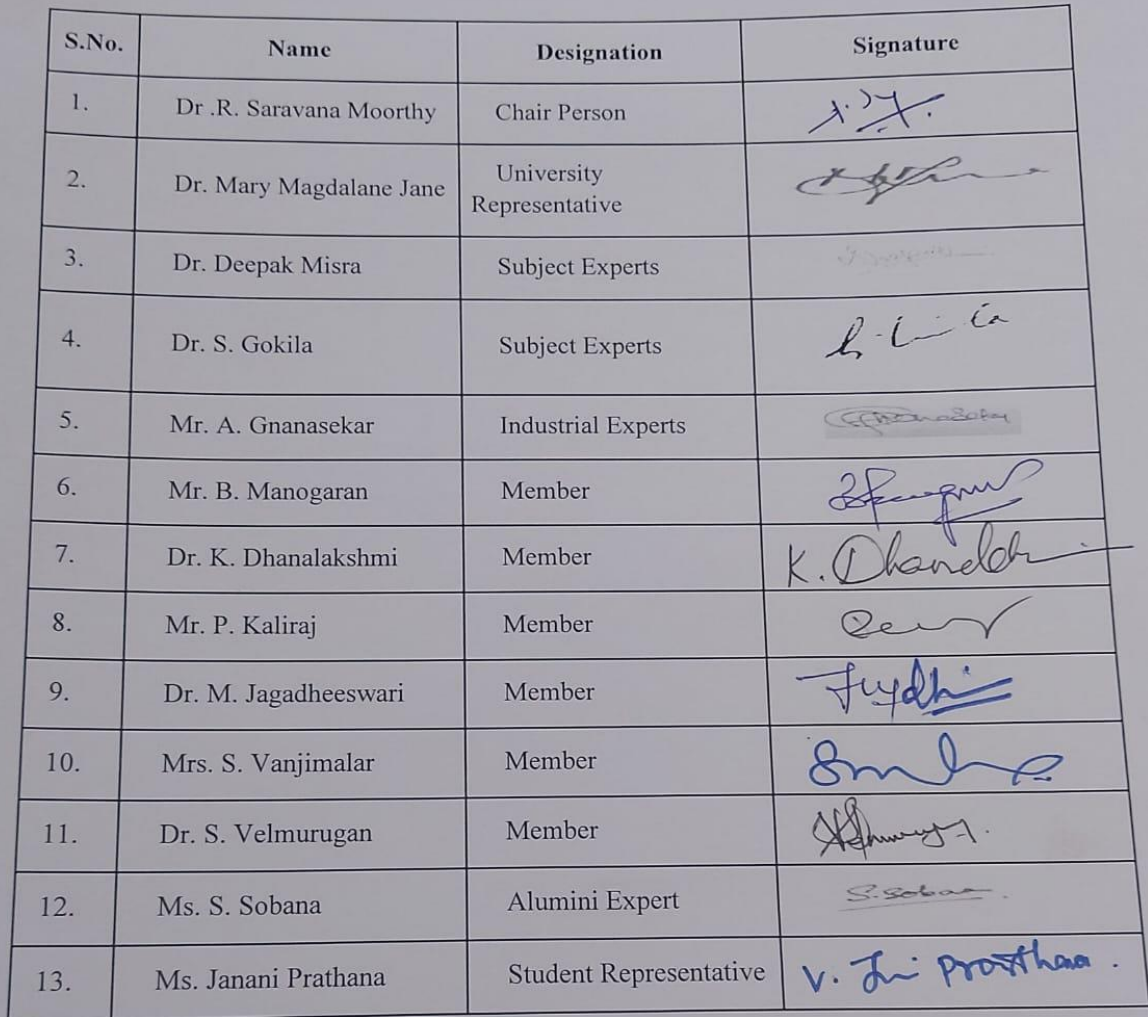 S.No. Name Designation Signature
1. Dr .R. Saravana Moorthy Chair Person
2. Dr. Mary Magdalane Jane University
Representative
3. Dr. Deepak Misra Subject Experts
4. Dr. S. Gokila Subject Experts
5. Mr. A. Gnanasekar Industrial Experts
6. Mr. B. Manogaran Member
7. Dr. K. Dhanalakshmi Member K.
8. Mr. P. Kaliraj Member
9. Dr. M. Jagadheeswari Member
10. Mrs. S. Vanjimalar Member
11. Dr. S. Velmurugan Member
12. Ms. S. Sobana Alumini Expert
13. Ms. Janani Prathana Student Representative V.